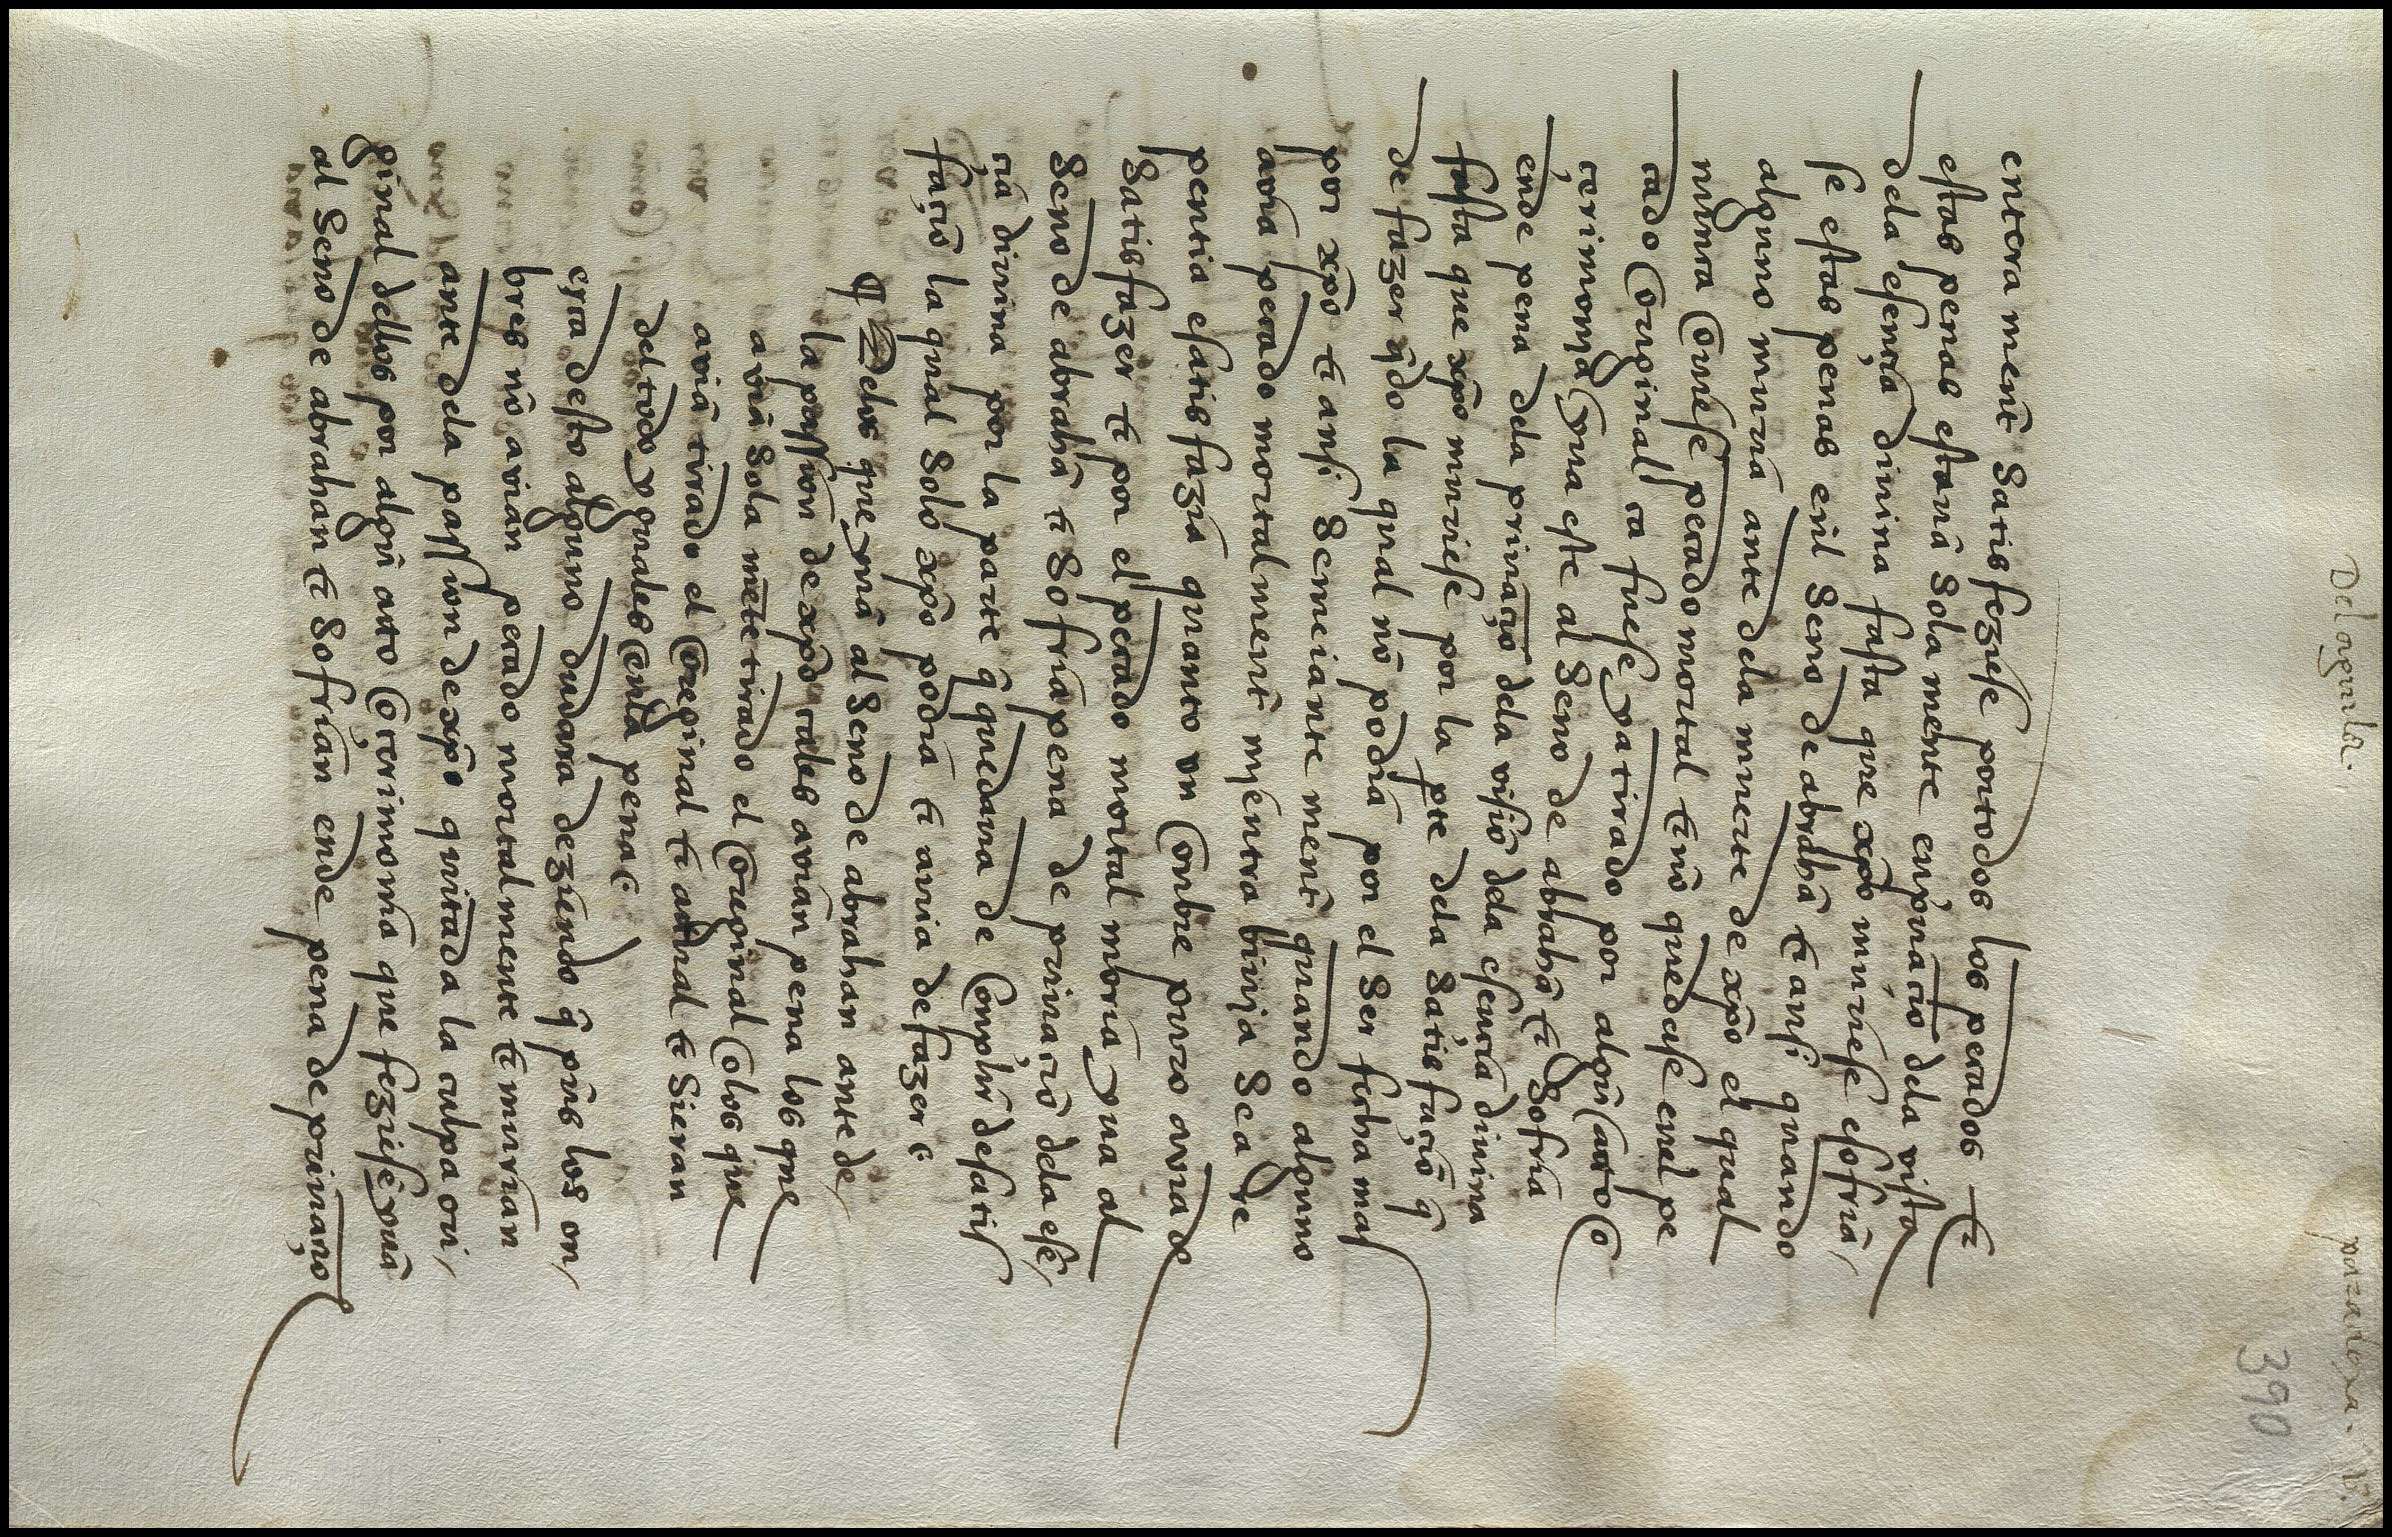 Del aguila.
390
entera ment̃ satisfeziese por todos los pecados ⁊
estas penas estauã sola mente en p̃uaçiõ dela vista
dela esençia diuina fasta que xp̃o muriese e sofriã
se estas penas enl seno de abrahã ⁊ ansi quando
alguno muriá ante dela muerte de xp̃o el qual
nunca ouiese pecado mortal ⁊ nõ quedase enel pe
cado original ca fuese ya tirado por algũ acto o
çerimonya yua este al seno de abrahã ⁊ sofria
ende pena dela priuaçiõ dela visiõ dela esençia diuina
fasta que xp̃o muriese por la pte dela satisfaçiõ q̃
de fazer q̃do la qual nõ podia por el ser fecha mas
por xp̃o ⁊ ansi semeiante ment̃ quando alguno
auia pecado mortal ment̃ myentra biuja sea Re
pentia e satisfazia quanto vn onbre puro auia de
satisfazer ⁊ por el pecado mortal moria yua al
seno de abrahã ⁊ sofria pena de priuaçiõ dela esẽ
çia diuina por la parte q̃ quedaua de conplir de satis
façiõ la qual solo xp̃o podia ⁊ auia de fazer
¶ Delos que yuã al seno de abrahan ante de
la passion de xp̃o tales auian pena los que
auiã sola mẽte tirado el original o los que
auiã tirado el original ⁊ actual ⁊ si eran
del todo yguales enla pena
çerca desto alguno dudara deziendo q̃ pues los on
bres nõ auian pecado mortal mente ⁊ murian
ante dela passion de xp̃o quitada la culpa ori
ginal dellos por algũ acto o çerimonia que feziesẽ yuã
al seno de abrahan ⁊ sofrian ende pena de priuaçiõ